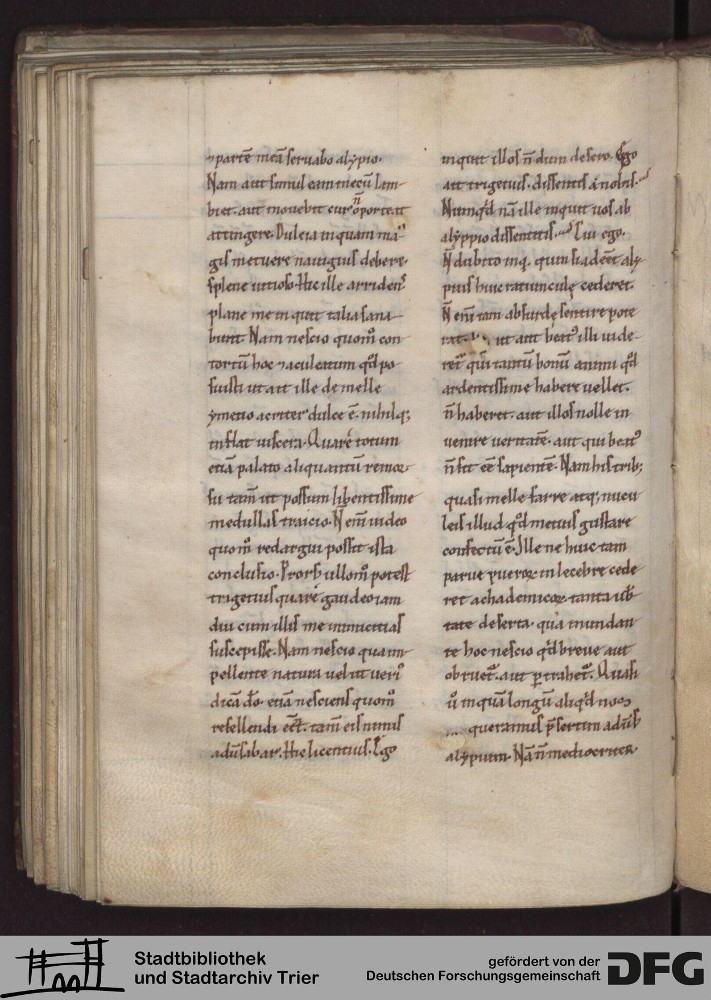 ⁊ partē meā seruabo alypio.
Nam aut simul eam mecū lam-
biet. aut mouebit cur n̄ oporteat
attingere. Dulcia inquam ma-
gis metuere nauigius debere.
splene uitioso. Hic ille arridens
plane me inquit talia sana-
bunt. Nam nescio quom̄ con
tortū hoc ⁊ aculeatum qd̄ po
suisti ut ait ille de melle
ymetio acriter dulce ē. nihilq;
inflat uiscera. Quare totum
etiā palato aliquantū remor
su tam̄ ut possum libentissime
medullas traicio. N̄ enī uideo
quom̄ redargui possit ista
conclusio. Prors' ullom̄ potest
trigetius quare gaudeo iam
diu cum illis me inimicitias
suscepisse. Nam nescio qua im
pellente natura uel ut ueri'
dicā dō. etiā nesciens quom̄
refellendi eēt. tam̄ eis nimis
aduersabar. Hic licentius. Ego
inquit illos n̄ dum desero. Ergo
ait trigetius. dissentis a nobis.
Numqd̄ nā ille inquit uos ab
alyppio dissentitis. Cui ego.
N̄ dubito inq. quin si adeēt aly
pius huic ratiunculę cederet.
N̄ enī tam absurdę sentire pote
rat. ut aut beat' illi uide-
ret' qui tantū bonū animi qd̄
ardentissime habere uellet.
n̄ haberet. aut illos nolle in
uenire ueritatē. aut qui beat'
n̄ sit eē sapientē. Nam his trib;
quasi melle farre atq; nucu
leis illud qd̄ metuis gustare
confectū ē. Ille ne huic tam
parue pueroꝝ inlecebre cede
ret achademicoꝝ tanta ub̄
tate deserta. qua inundan
te hoc nescio qd̄ breue aut
obruet'. aut ꝑtrahet'. Quasi
u° inquā longū aliqd̄ nos
queramus p̄sertim aduers'
alypium. Nā n̄ mediocriter
Stadtbibliothek
und Stadtarchiv Trier
gefördert von der
Deutschen Forschungsgemeinschaft
DFG